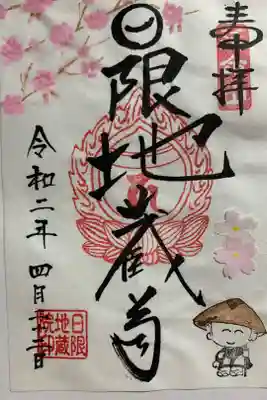 奉拝
日限地蔵尊
令和二年 四月
日限
地蔵
院印